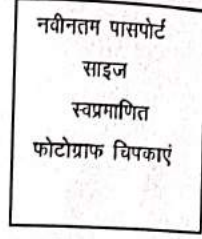 नवीनतम पासपोर्ट
साइज
स्वप्रमाणित
फोटोग्राफ चिपकाएं